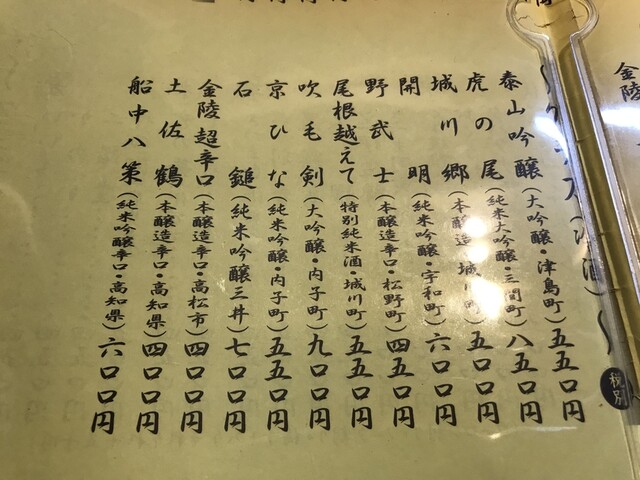 泰山吟醸(大吟醸・津島町)五五〇円
虎の尾(純米大吟醸・三間町)八五〇円
城川郷(本醸造・城川町)五〇〇円
開明(純米吟醸・宇和町)六〇〇円
野武士(本醸造辛口・松野町)四五〇円
尾根越えて(特別純米酒・城川町)五五〇円
吹毛剣(大吟醸・内子町)九〇〇円
京ひな(純米吟醸・内子町)五五〇円
石鎚(純米吟醸三井)七〇〇円
金陵超辛口(本醸造辛口・高松市)四〇〇円
土佐鶴(本醸造辛口・高知県)四〇〇円
船中八策(純米吟醸辛口・高知県)六〇〇円
税別
金陵